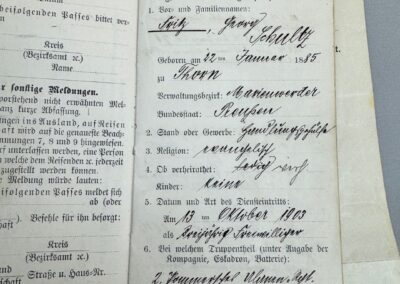 beifolgenden Passes bittet ver-
Kreis
(Bezirksamt ꝛc.)
Name
r sonstige Meldungen.
vorstehend nicht erwähnten Mel-
anz kurze Abfassung.
ngen ins Ausland, auf Reisen
art wird auf die genaueste Beach-
immungen 7, 8 und 9 hingewiesen.
unterlassen werden, eine Person
n welche dem Reisenden ꝛc. jederzeit
Meldung würde lauten:
eifolgenden Passes meldet sich
ab (oder
). Befehle für ihn besorgt:
haft)
Kreis
(Bezirksamt ꝛc.)
Straße u. Haus-Nr.
1. Vor- und Familiennamen:
Fritz, Georg
Schultz
Geboren am 22 ten Januar 1885
zu Thorn
Verwaltungsbezirk: Marienwerder
Bundesstaat: Preußen
2. Stand oder Gewerbe: Handlungsgehülfe
3. Religion: evangelisch
4. Ob verheiratet:
Kinder: keine
5. Datum und Art des Diensteintritts:
Am 13 ten Oktober 1903
als Freiwilliger
6. Bei welchem Truppenteil (unter Angabe der
Kompagnie, Eskadron, Batterie):
2. Ulanen Regt.